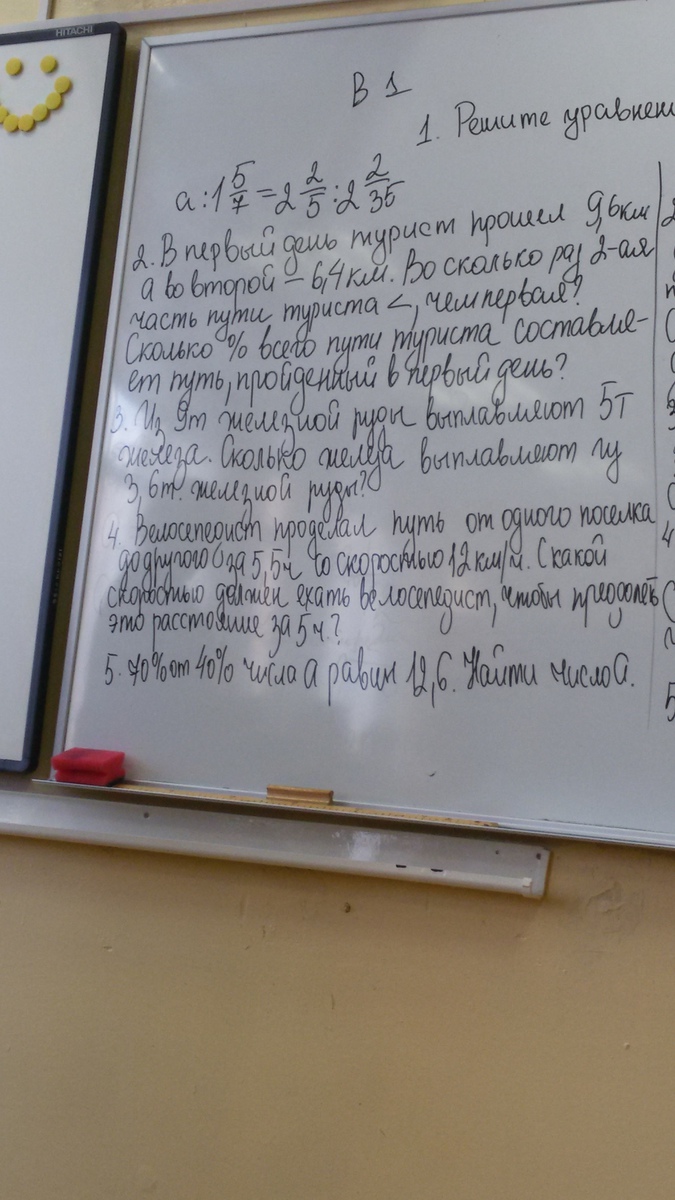 HITACHI
В 1
1. Решите уравнен
a : 1 5/7 = 2 2/5 : 2 2/35
2. В первый день турист прошел 9,6км
а во второй – 6,4 км. Во сколько раз 2-ая
часть пути туриста <, чем первая?
Сколько % всего пути туриста составля-
ет путь, пройденный в первый день?
3. Из 9т железной руды выплавляют 5т
железа. Сколько железа выплавляют из
3,6т. железной руды?
4. Велосепедист проделал путь от одного поселка
до другого за 5,5ч со скоростью 12 км/ч. С какой
скоростью должен ехать велосепедист, чтобы преодолеть
это расстояние за 5ч?
5. 70% от 40% числа а равны 12,6. Найти число а.